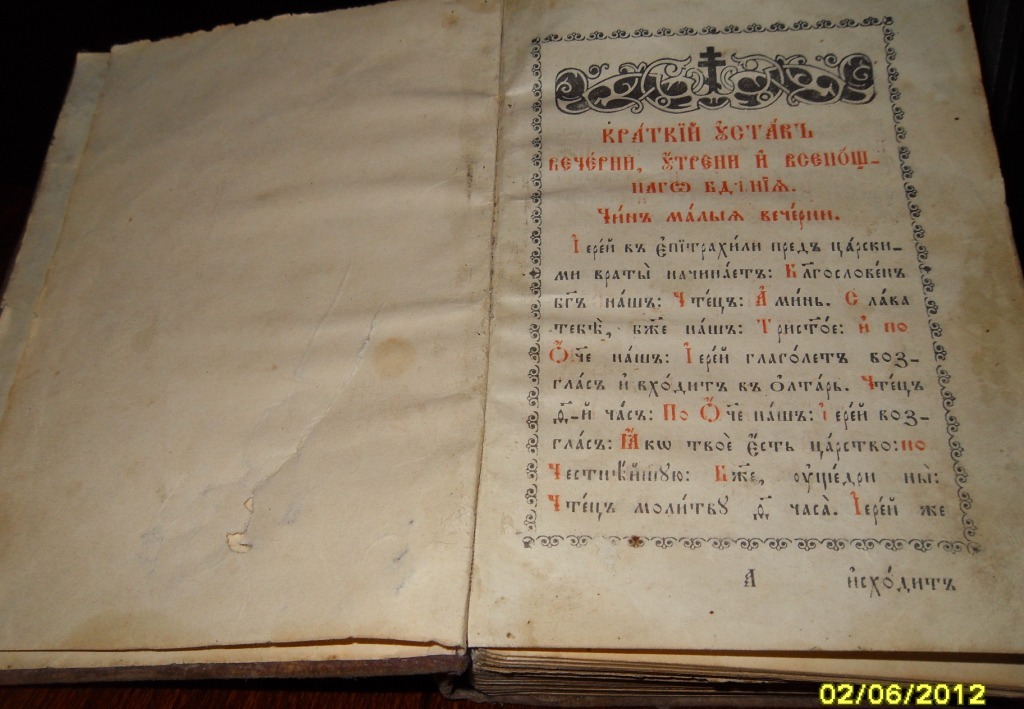 КРА́ТКЇЙ ᲂУ҆СТА́ВЪ
ВЕЧЕ́РНИ, ᲂУ҆́ТРЕНИ И҆ ВСЕНО́Щ-
НАГѠ БДѢ́НЇѦ.
Чи́нъ ма́лыѧ вече́рни.
І҆ере́й въ є҆пїтрахи́ли предъ ца́рски-
ми враты̀ начина́етъ: Бл҃гослове́нъ
бг҃ъ на́шъ: Чте́цъ: А҆ми́нь. Сла́ва
тебѣ̀, бж҃е на́шъ: Трист҃о́е: и҆ по
Ѻ҆́ч҃е на́шъ: І҆ере́й глаго́летъ воз-
гла́съ и҆ вхо́дитъ въ ѻ҆лта́рь. Чте́цъ
д҃-й ча́съ: По Ѻ҆́ч҃е на́шъ: і҆ере́й воз-
гла́съ: Ꙗ҆́кѡ твоѐ є҆́сть ца́рство: по
Честнѣ́йшꙋю: Бж҃е, ᲂу҆ще́дри ны̀:
Чте́цъ моли́твꙋ д҃ часа̀. І҆ере́й же
А҃ и҆схо́дитъ
02/06/2012